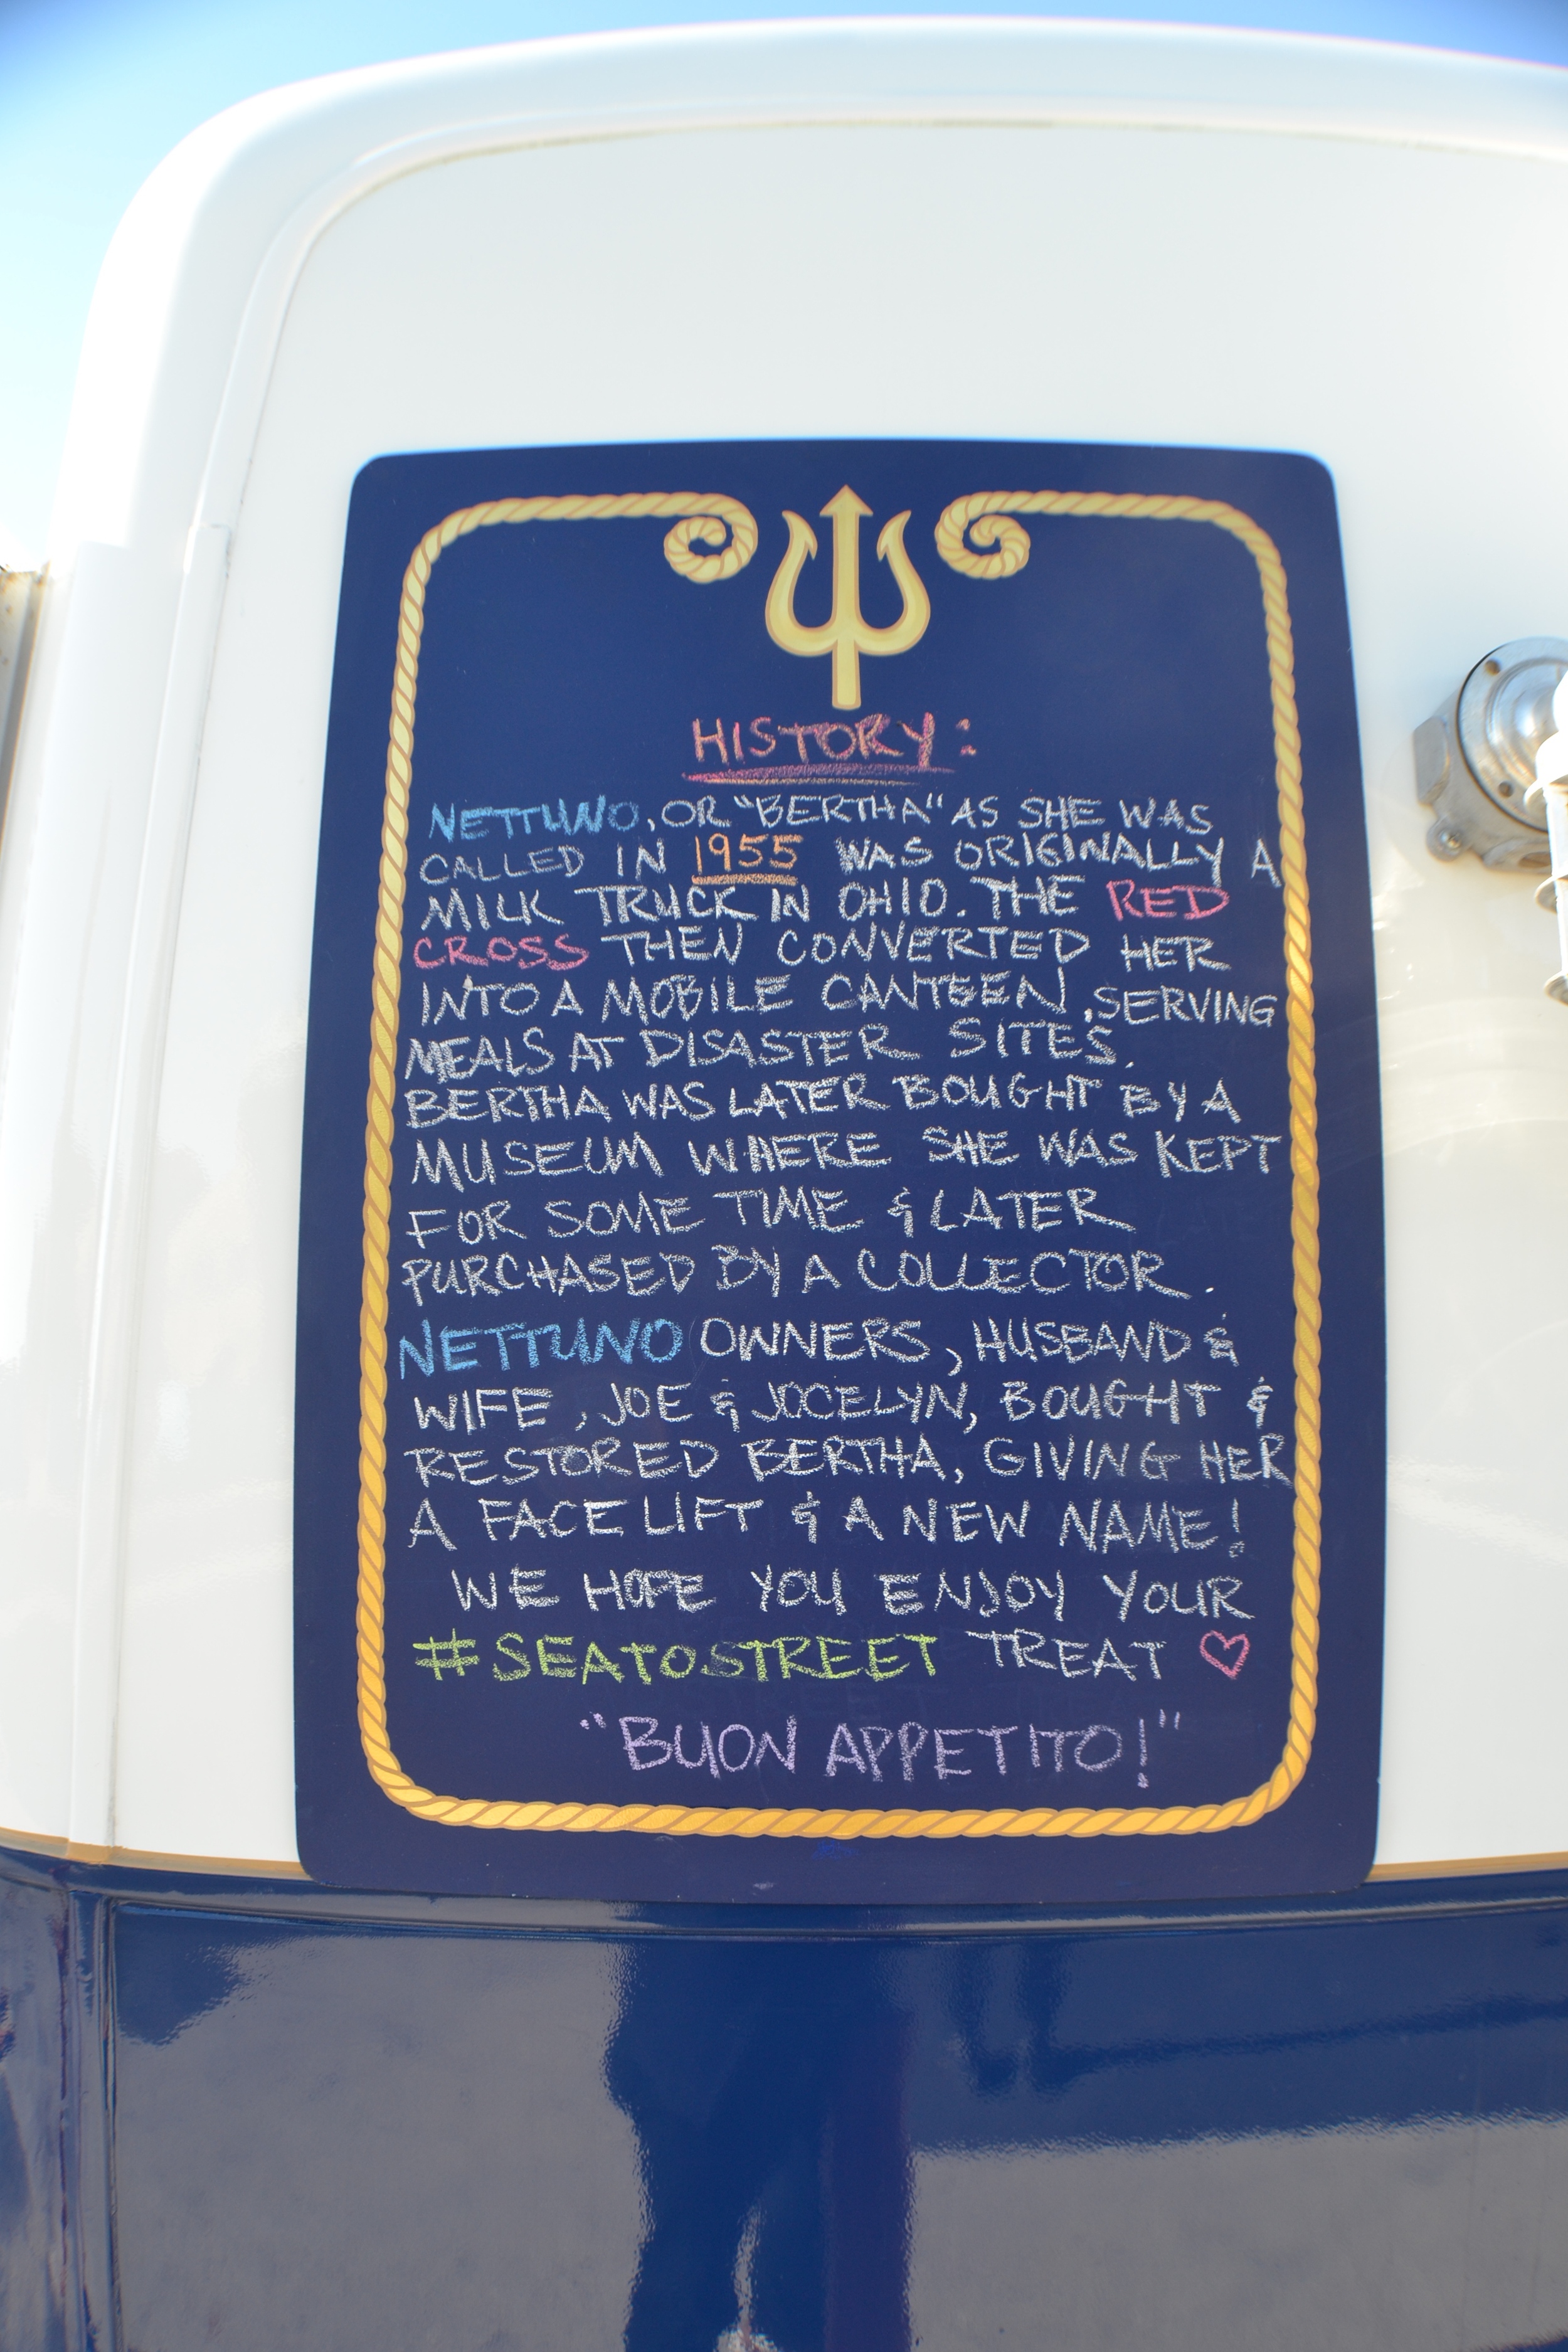 HISTORY:
NETTUNO, OR "BERTHA" AS SHE WAS
CALLED IN 1955 WAS ORIGINALLY A
MILK TRUCK IN OHIO. THE RED
CROSS THEN CONVERTED HER
INTO A MOBILE CANTEEN, SERVING
MEALS AT DISASTER SITES.
BERTHA WAS LATER BOUGHT BY A
MUSEUM WHERE SHE WAS KEPT
FOR SOME TIME & LATER
PURCHASED BY A COLLECTOR.
NETTUNO OWNERS, HUSBAND &
WIFE, JOE & JOCELYN, BOUGHT &
RESTORED BERTHA, GIVING HER
A FACE LIFT & A NEW NAME!
WE HOPE YOU ENJOY YOUR
#SEATOSTREET TREAT ♡
"BUON APPETITO!"